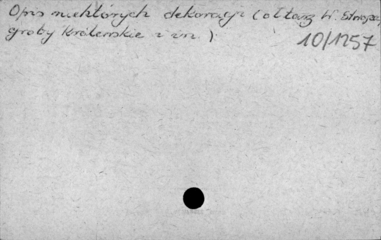 Opis niektórych dekoracji (ołtarz W. Stwosza,
groby królewskie i in.)
10/1257